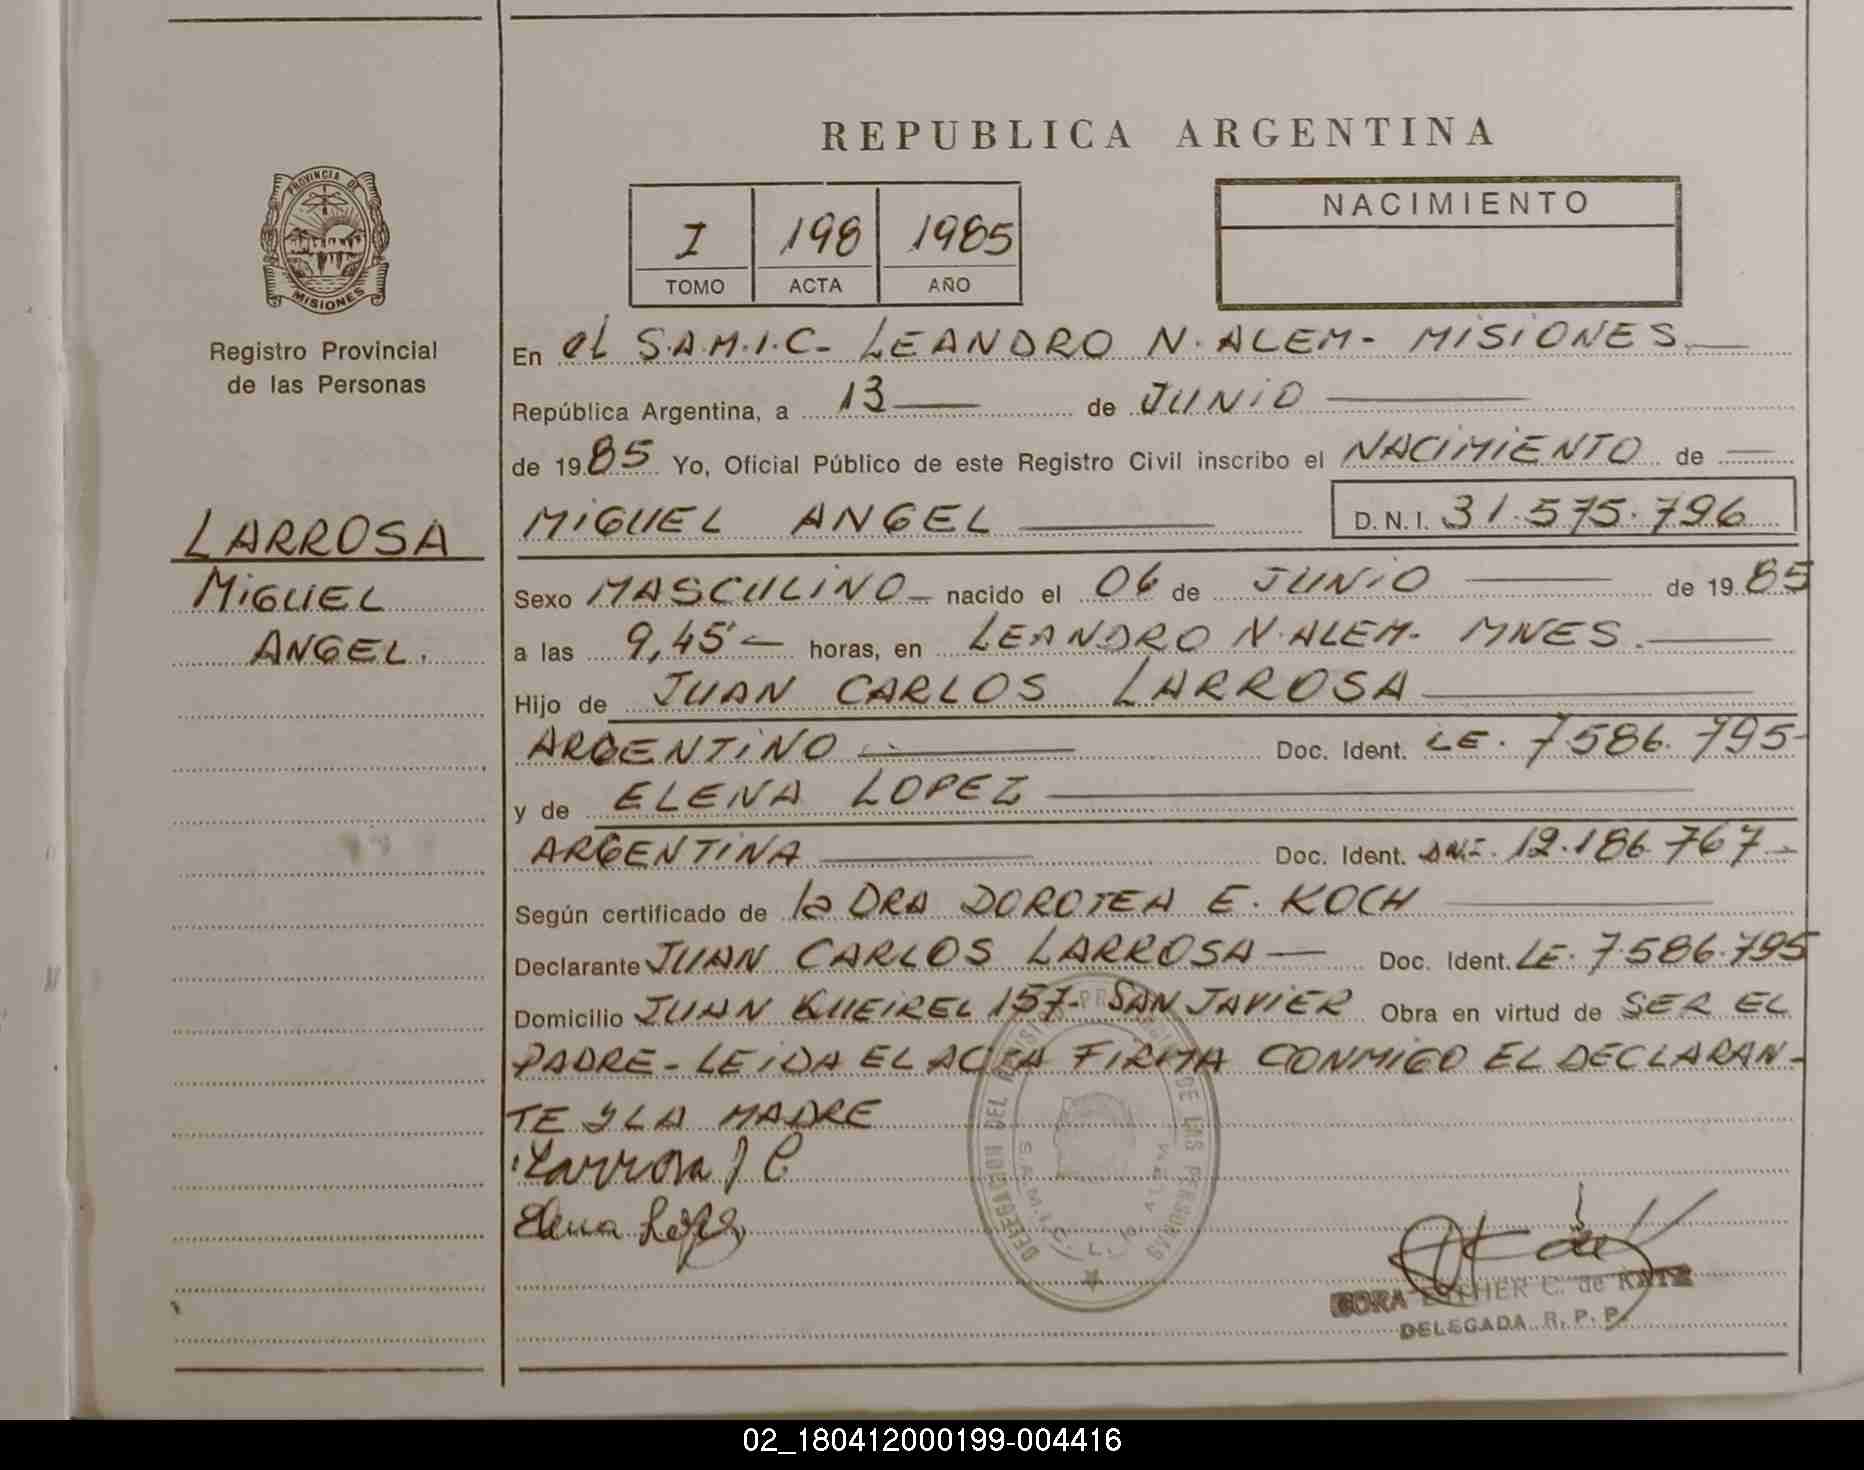 REPUBLICA ARGENTINA
PROVINCIA DE
MISIONES
Registro Provincial
de las Personas
LARROSA
MIGUEL
ANGEL.
I 198 1985
TOMO ACTA AÑO
NACIMIENTO
En el S.A.M.I.C- LEANDRO N. ALEM- MISIONES
República Argentina, a 13 de JUNIO
de 1985 Yo, Oficial Público de este Registro Civil inscribo el NACIMIENTO de
MIGUEL ANGEL D.N.I. 31.575.796
Sexo MASCULINO nacido el 06 de JUNIO de 1985
a las 9,45' horas, en LEANDRO N. ALEM- MNES.
Hijo de JUAN CARLOS LARROSA
ARGENTINO Doc. Ident. LE. 7586.795-
y de ELENA LOPEZ
ARGENTINA Doc. Ident. DNI. 12.186.767
Según certificado de la DRA DOROTEA E. KOCH
Declarante JUAN CARLOS LARROSA Doc. Ident. LE. 7.586.795
Domicilio JUAN KUEIREL 157- SAN JAVIER Obra en virtud de SER EL
PADRE- LEIDA EL ACTA FIRMA CONMIGO EL DECLARAN-
TE Y LA MADRE
Larrosa J C
Elena López
DELEGACION DEL REGISTRO PROVINCIAL DE LAS PERSONAS
S.A.M.I.C. L. N. ALEM
ESTHER C. de KATZ
DELEGADA R. P. P.
02_180412000199-004416